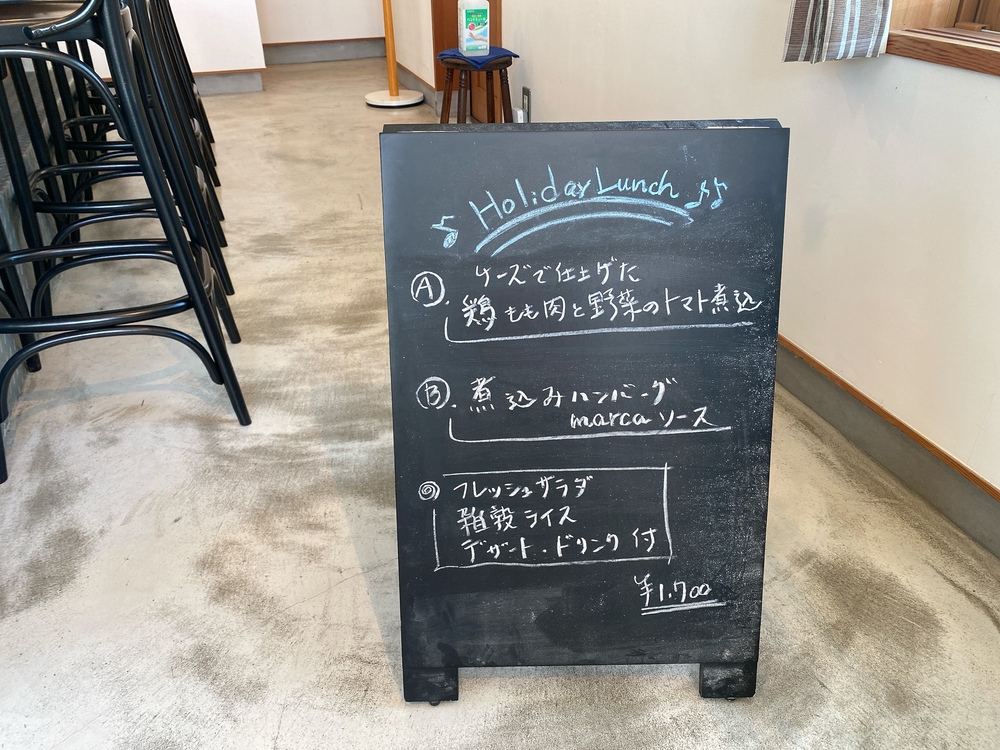 ♪ Holiday Lunch ♪♪
Ⓐ. チーズで仕上げた
鶏もも肉と野菜のトマト煮込
Ⓑ. 煮込みハンバーグ
marca ソース
◎ フレッシュサラダ
雑穀ライス
デザート・ドリンク付
¥1.700